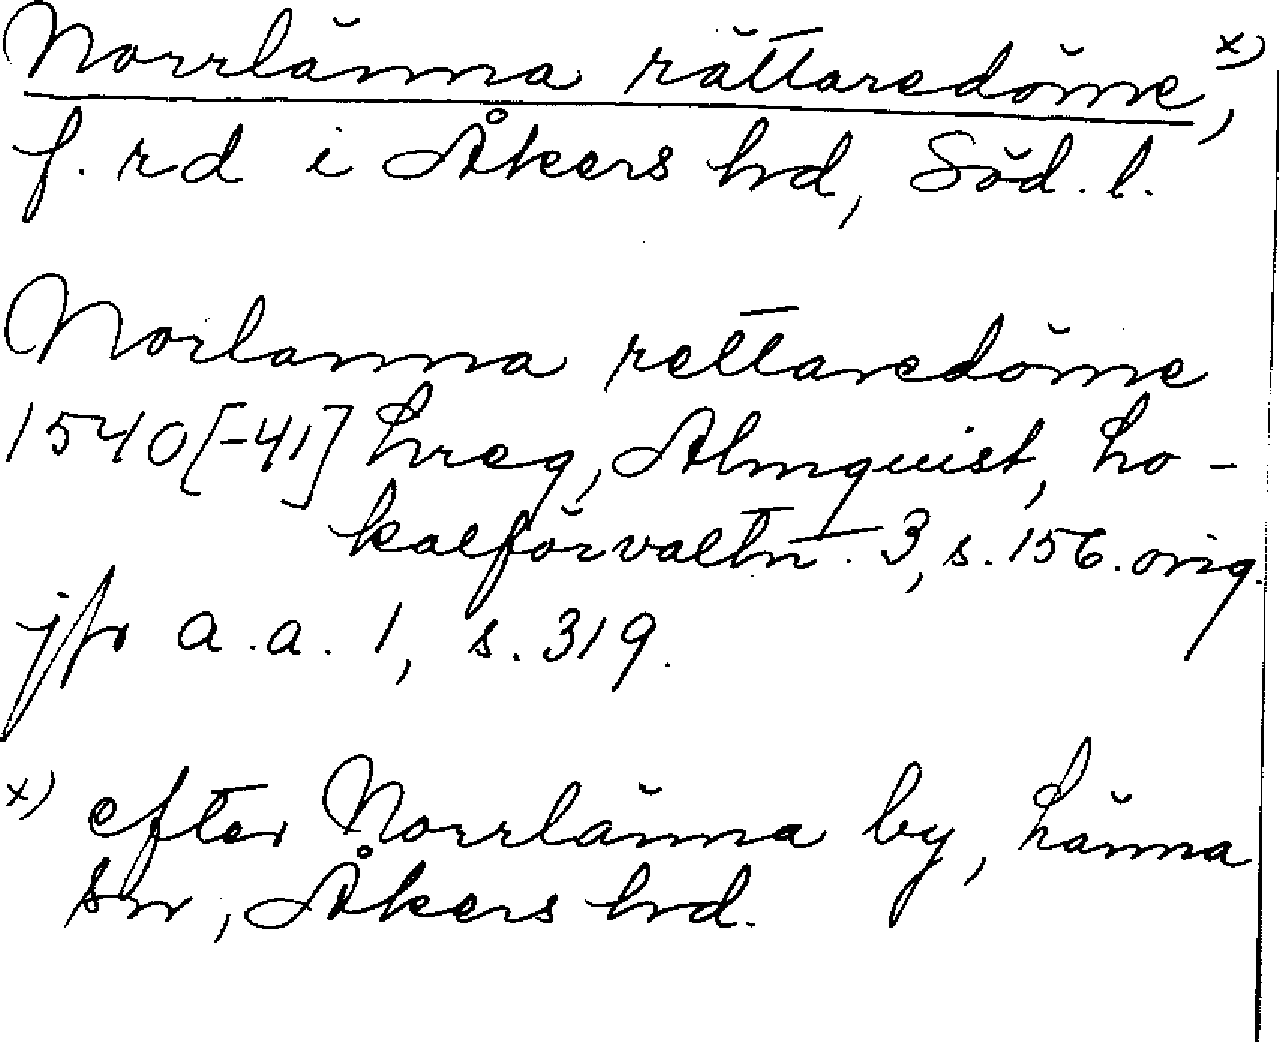 Norrlänna rättaredöme, x)
f. rd i Åkers hd, Söd. l.
Norlanna rettaredöme
1540[-41] Lreg, Almquist, Lo-
kalförvaltn. 3, s. 156. orig.
jfr a.a. 1, s. 319.
x) efter Norrlänna by, Länna
sn, Åkers hd.